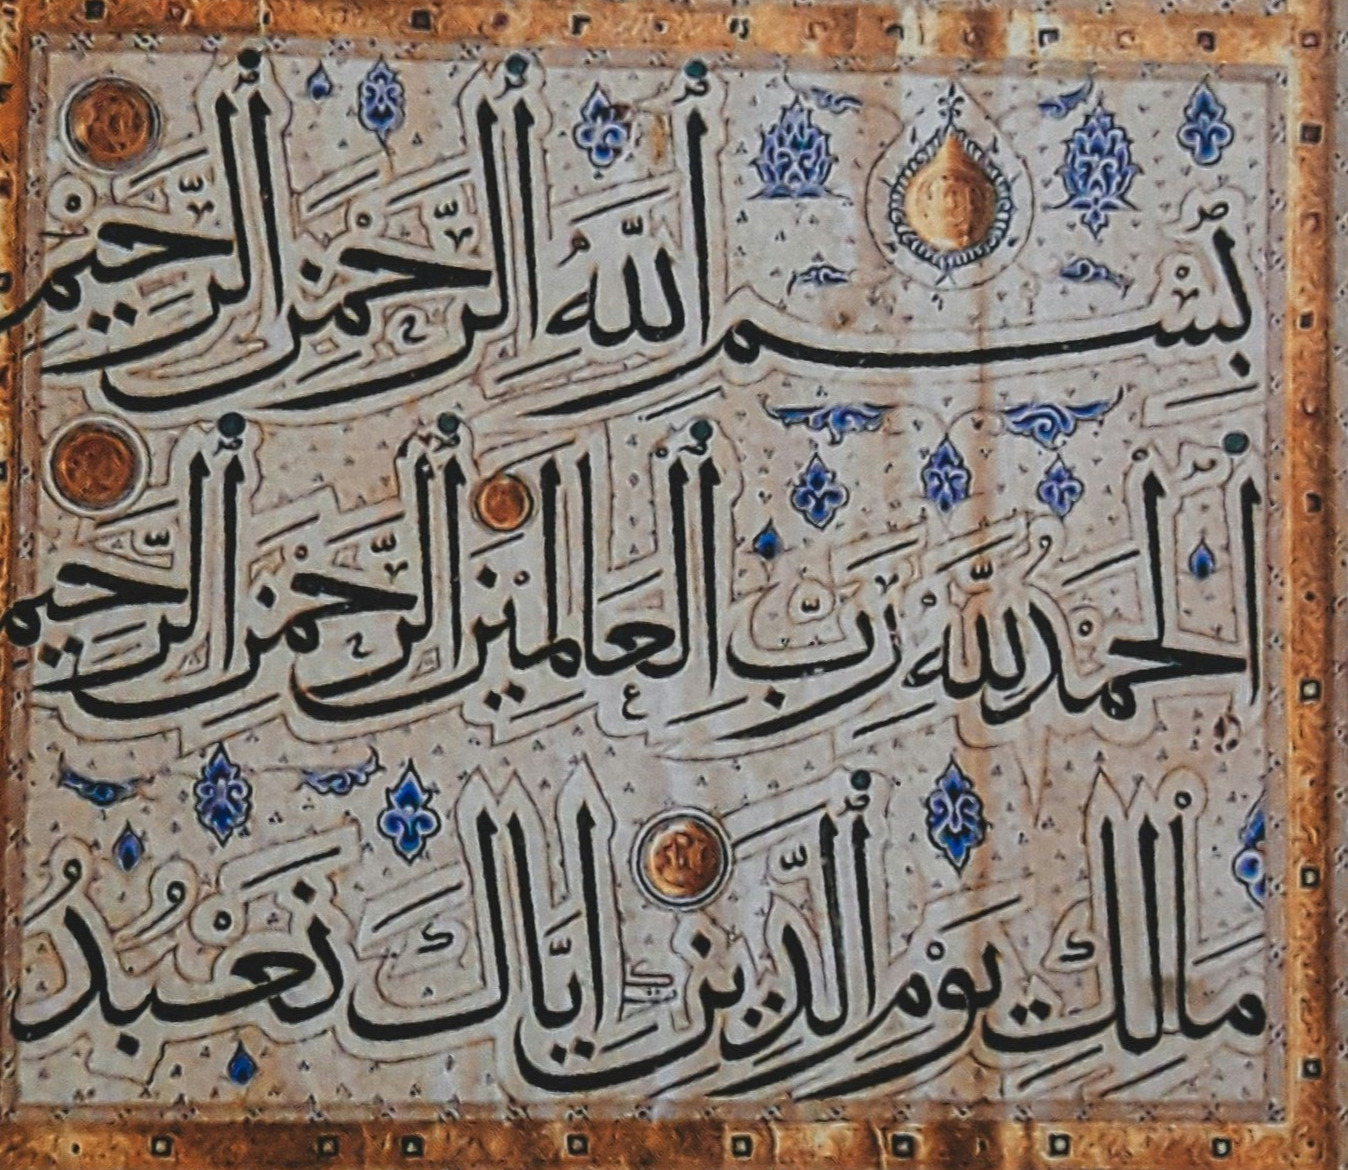 بِسْمِ اللَّهِ الرَّحْمٰنِ الرَّحِيْمِ
اَلْحَمْدُ لِلّٰهِ رَبِّ الْعَالَمِيْنَ الرَّحْمٰنِ الرَّحِيمِ
مَالِكِ يَوْمِ الدِّينِ اِيَّاكَ نَعْبُدُ